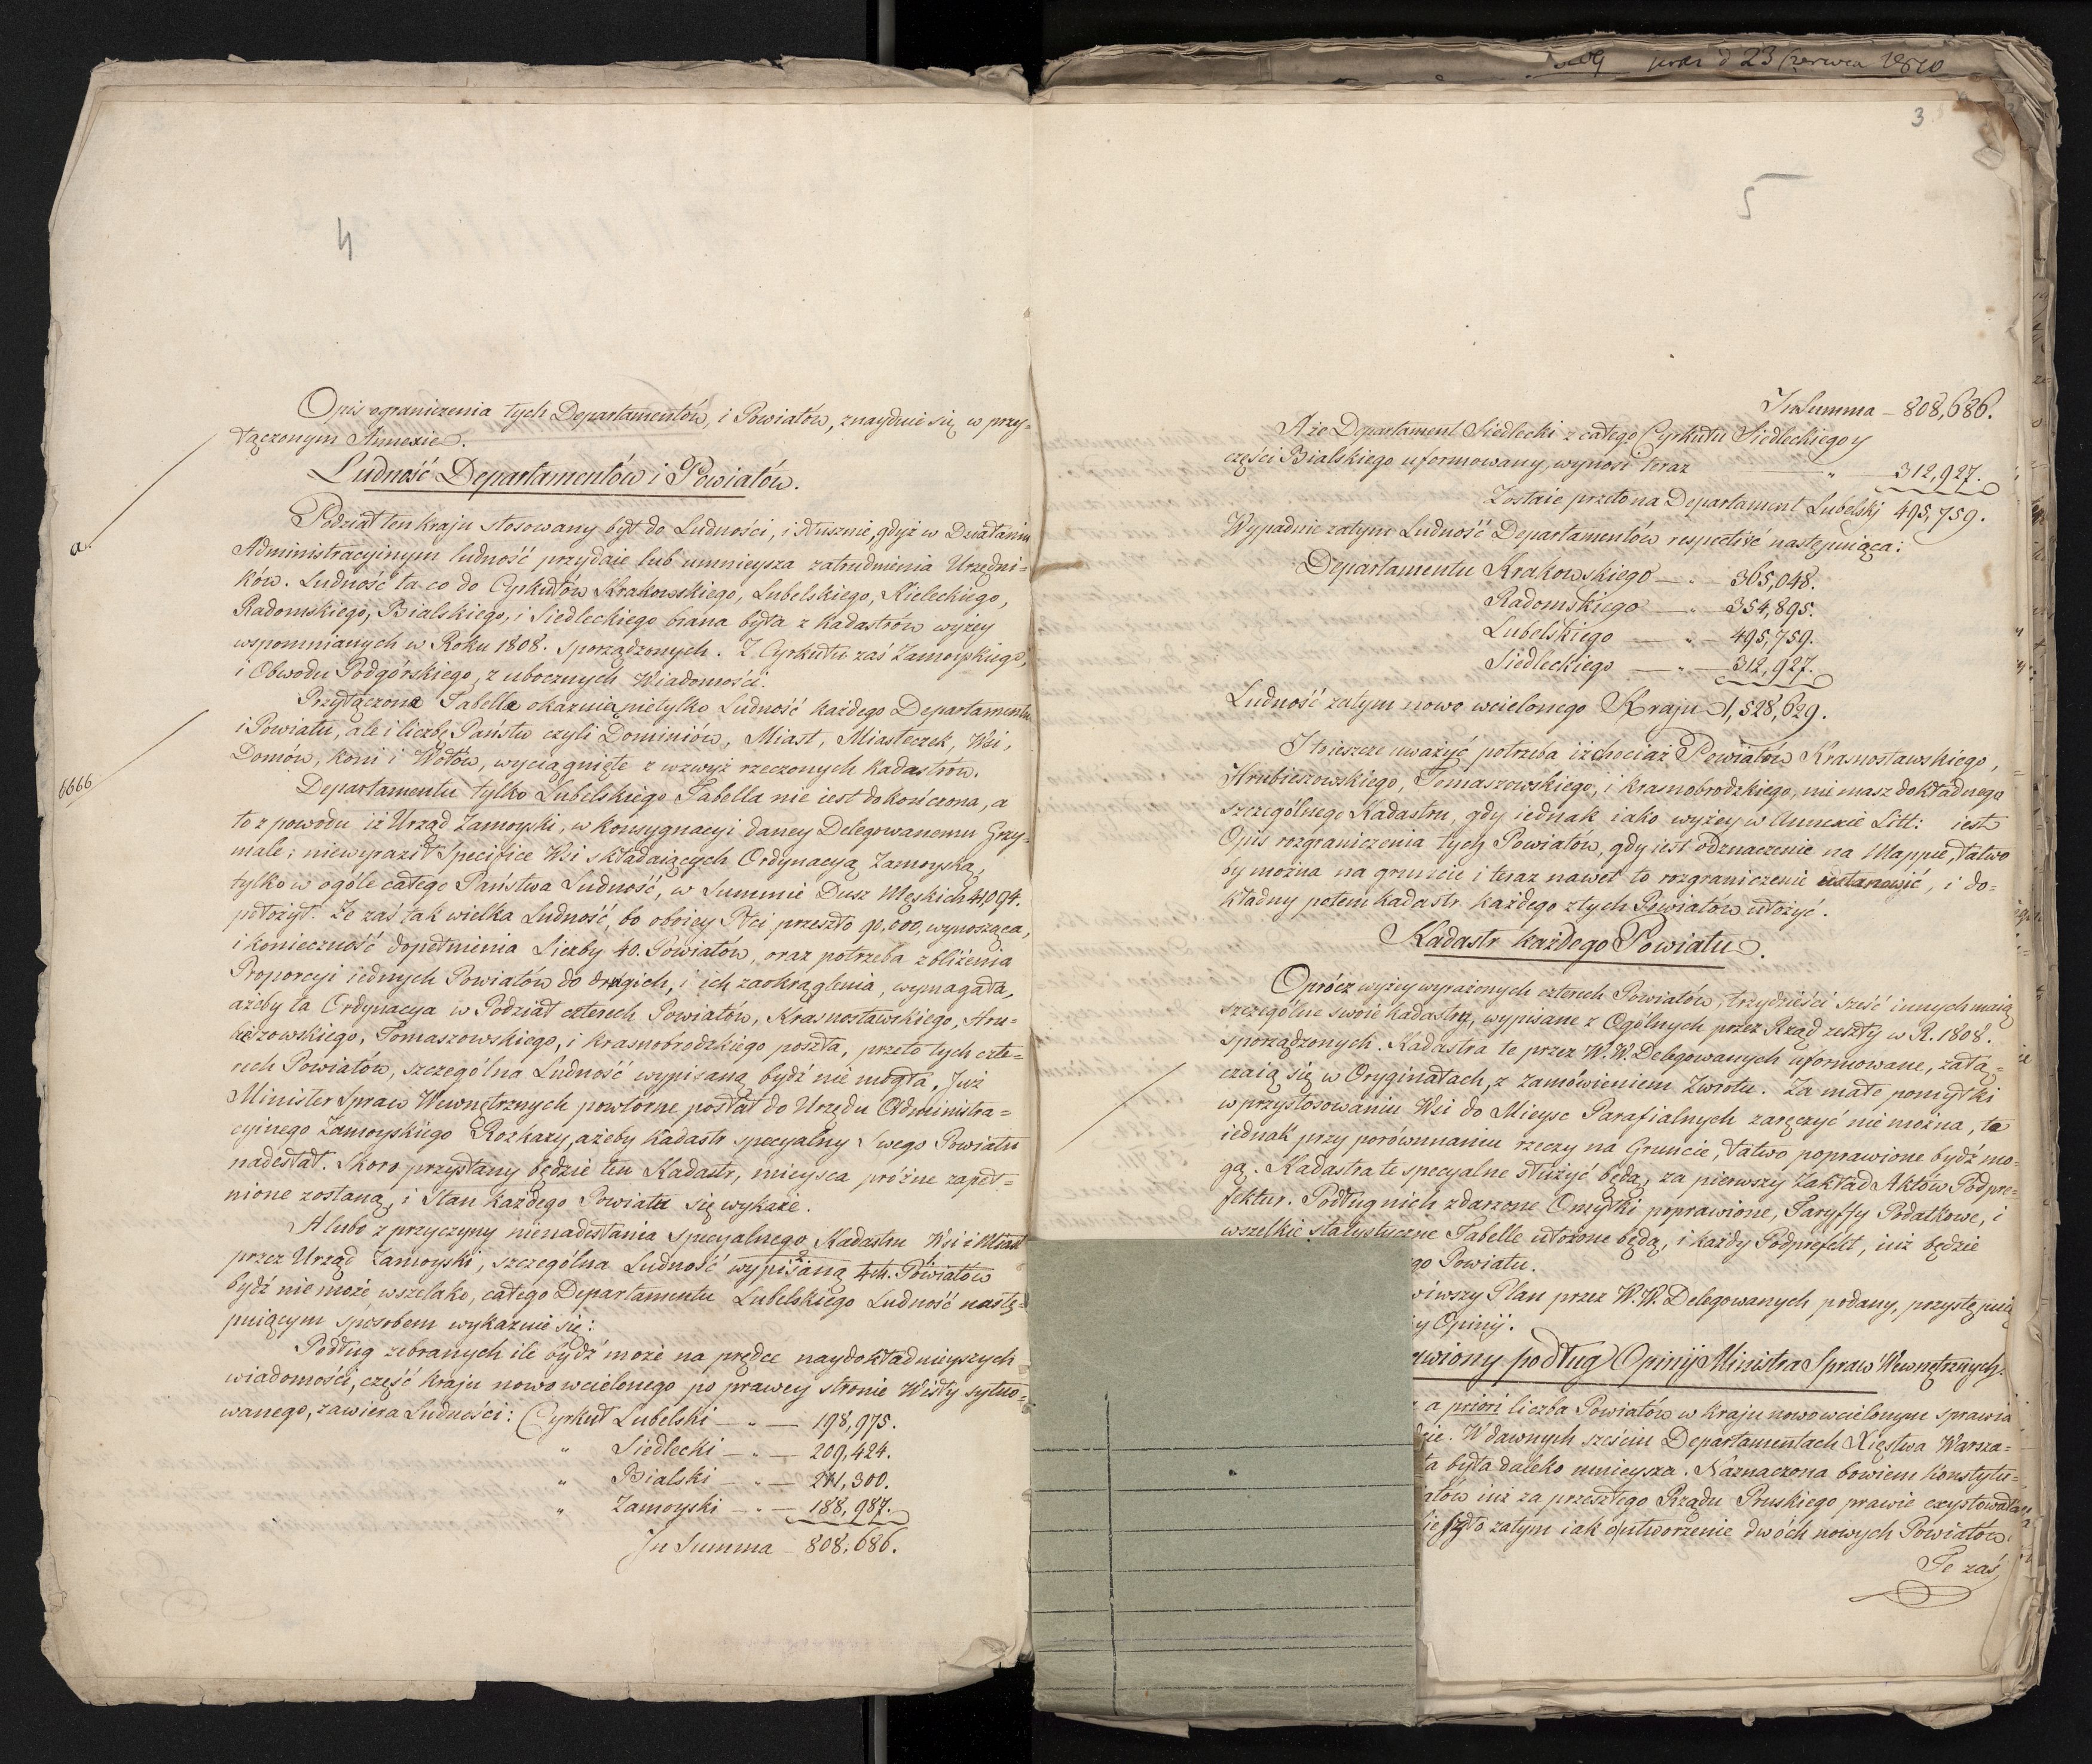 4
Opis ograniczenia tych Departamentów, i Powiatów, znayduie się w przy-
łączonym Annexie.
Ludność Departamentów i Powiatów.
a.
Podział ten kraju stosowany był do Ludności, i słusznie, gdyż w Działaniu
Administracyinym ludność przydaie lub umnieysza zatrudnienia Urzędni-
ków. Ludność ta co do Cyrkułów Krakowskiego, Lubelskiego, Kieleckiego,
Radomskiego, Bialskiego, i Siedleckiego brana była z Kadastrów wyżey
wspomnianych w Roku 1808. sporządzonych. Z Cyrkułu zaś Zamoyskiego,
i Obwodu Podgórskiego, z ubocznych Wiadomości.
Przyłączone Tabelle okazuią nietylko Ludność każdego Departamentu
i Powiatu, ale i liczbę Państw czyli Dominiów, Miast, Miasteczek, Wsi,
Domów, koni i Wołów, wyciągnięte z wzwyż rzeczonych kadastrów.
6666
Departamentu tylko Lubelskiego Tabella nie iest dokończona, a
to z powodu iż Urząd Zamoyski, w konsygnacyi daney Delegowanemu Grzy-
male; niewyraził Specifice Wsi składaiących Ordynacyą Zamoyską,
tylko w ogóle całego Państwa Ludność, w Summie Dusz Męskich 41094.
położył. Że zaś tak wielka Ludność, bo oboiey Płci przeszło 90,000, wynosząca,
i konieczność dopełnienia Liczby 40. Powiatów, oraz potrzeba zbliżenia
Proporcyi iednych Powiatów do drugich, i ich zaokrąglenia, wymagała,
ażeby ta Ordynacya w Podział czterech Powiatów, Krasnostawskiego, Hru-
bieszowskiego, Tomaszowskiego, i Krasnobrodzkiego poszła, przeto tych czte-
rech Powiatów, szczególna Ludność wypisaną bydź nie mogła. Już
Minister Spraw Wewnętrznych powtórne posłał do Urzędu Administra-
cyinego Zamoyskiego Rozkazy, ażeby Kadastr specyalny Swego Powiatu
nadesłał. Skoro przysłany będzie ten Kadastr, mieysca próżne zapeł-
nione zostaną, i Stan każdego Powiatu się wykaże.
A lubo z przyczyny nienadesłania specyalnego Kadastru Wsi i Miast
przez Urząd Zamoyski, szczególna Ludność wypisaną 4ch. Powiatów
bydź nie może, wszelako, całego Departamentu Lubelskiego Ludność nastę-
puiącym sposobem wykazuie się:
Podług zebranych ile bydź może na prędce naydokładnieyszych
wiadomości, część kraju nowo wcielonego po prawey stronie Wisły sytuo-
wanego, zawiera Ludności: Cyrkuł Lubelski — " — 198,975.
" Siedlecki — " — 209,424.
" Bialski — " — 211,300.
" Zamoyski — " — 188,987.
In Summa — 808,686.
d 23 Czerwca 1810
3
5
In Summa — 808,686.
A że Departament Siedlecki z całego Cyrkułu Siedleckiego y
części Bialskiego uformowany, wynosi teraz — " — 312,927.
Zostaie przeto na Departament Lubelski 495,759.
Wypadnie zatym Ludność Departamentów respectivè następuiąca:
Departamentu Krakowskiego — " — 365,048.
Radomskiego — " — 354,895.
Lubelskiego — " — 495,759.
Siedleckiego — " — 312,927.
Ludność zatym nowo wcielonego Kraju 1,528,629.
I to ieszcze uważyć potrzeba iż chociaż Powiatów Krasnostawskiego,
Hrubieszowskiego, Tomaszowskiego, i Krasnobrodzkiego, nie masz dokładnego
szczególnego Kadastru, gdy iednak iako wyżey w Annexie Litt: iest
Opis rozgraniczenia tych Powiatów, gdy iest odznaczenie na Mappie, łatwo
by można na gruncie i teraz nawet to rozgraniczenie ustanowić, i do-
kładny potem kadastr każdego z tych Powiatów ułożyć.
Kadastr każdego Powiatu.
Oprócz wyżey wyrażonych czterech Powiatów, trzydzieści sześć innych maią
szczególne swoie kadastry, wypisane z Ogólnych przez Rząd zeszły w R. 1808.
sporządzonych. Kadastra te przez W.W. Delegowanych uformowane, załą-
czaią się w Oryginałach, z zamówieniem Zwrotu. Za małe pomyłki
w przystosowaniu Wsi do Mieysc Parafialnych zaręczyć nie można, te
iednak przy porównaniu rzeczy na Gruncie, łatwo poprawione bydź mo-
gą. Kadastra te specyalne służyć będą, za pierwszy Zakład Aktów Podpre-
fektur. Podług nich zdarzone Omyłki poprawione, Taryffy Podatkowe, i
wszelkie statystyczne Tabelle ułożone będą, i każdy Podprefekt, iuż będzie
go Powiatu.
wszy Plan przez W.W. Delegowanych podany, przystępuię
y Opinij.
wiony podług Opinij Ministra Spraw Wewnętrznych.
a priori liczba Powiatów w kraju nowo wcielonym sprawia
cie. W dawnych sześciu Departamentach Xięstwa Warsza-
ta była daleko mnieysza. Naznaczona bowiem konstytu-
atów iuż za przeszłego Rządu Pruskiego prawie exystowała
zatym iak o utworzenie dwóch nowych Powiatów.
Te zaś